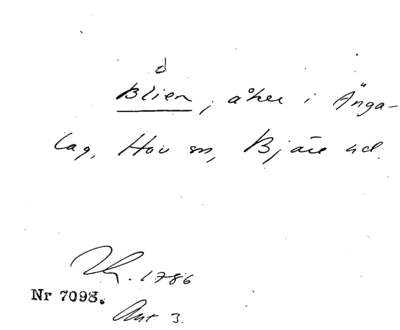 d
Blien, åker i Änga-
lag, Hov sn, Bjäre hd.
Th. 1786
Nr 7093.
Akt 3.